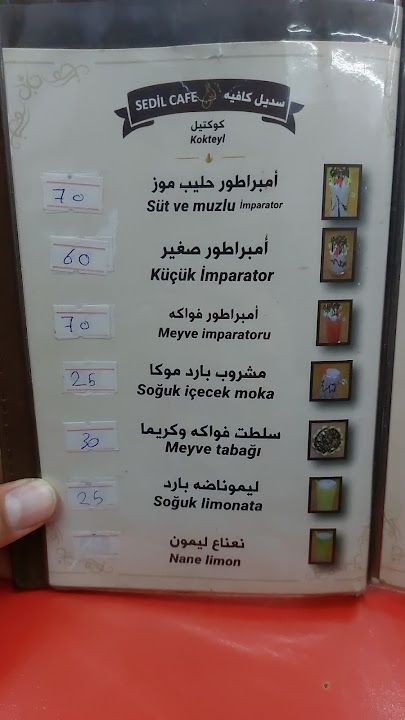 SEDİL CAFE سديل كافيه
كوكتيل
Kokteyl
أمبراطور حليب موز
70
Süt ve muzlu İmparator
أمبراطور صغير
60
Küçük İmparator
أمبراطور فواكه
70
Meyve imparatoru
مشروب بارد موكا
25
Soğuk içecek moka
سلطت فواكه وكريما
30
Meyve tabağı
ليموناضه بارد
25
Soğuk limonata
نعناع ليمون
Nane limon